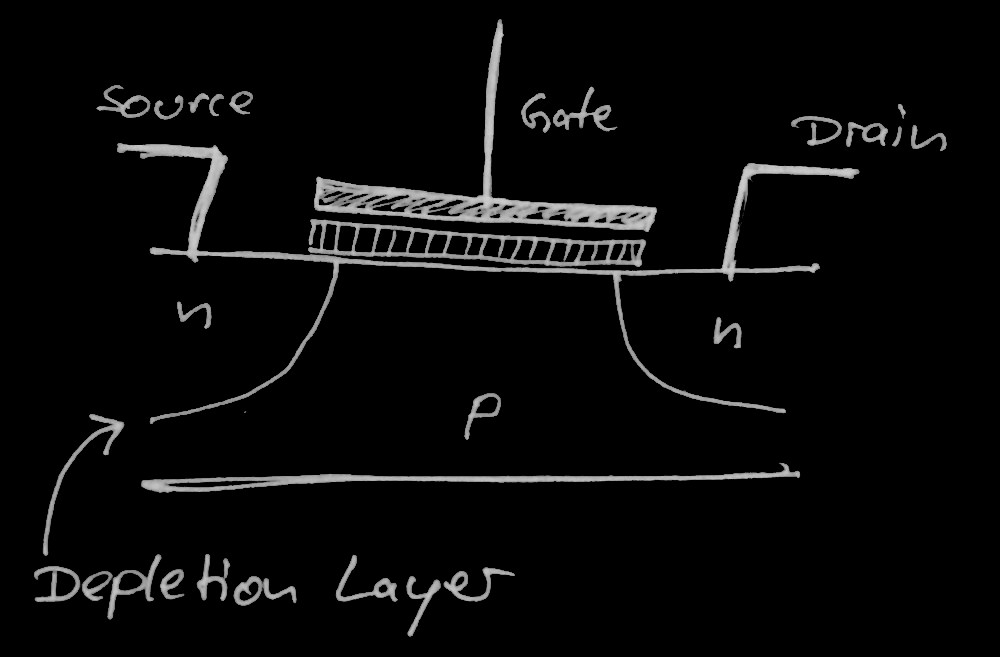 Source
Gate
Drain
n
n
P
Depletion Layer